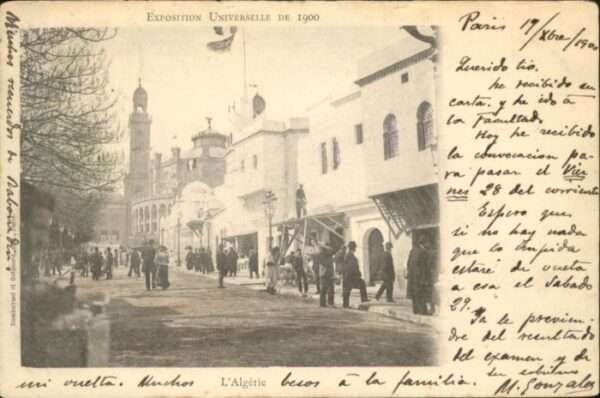 EXPOSITION UNIVERSELLE DE 1900
Paris 17/Xbre/1900
Querido tio.
he recibido su
carta. y he ido á
la facultad.
Hoy he recibido
la convocacion pa-
ra pasar el Vier-
nes 28 del corriente
Espero que
si no hay nada
que lo impida
estaré de vuelta
a esa el Sabado
29.
Ya le preven-
dre del resultado
del examen y de
su sobrino
mi vuelta. Muchos besos á la familia. M. Gonzalez
L'Algérie
Muchos recuerdos de